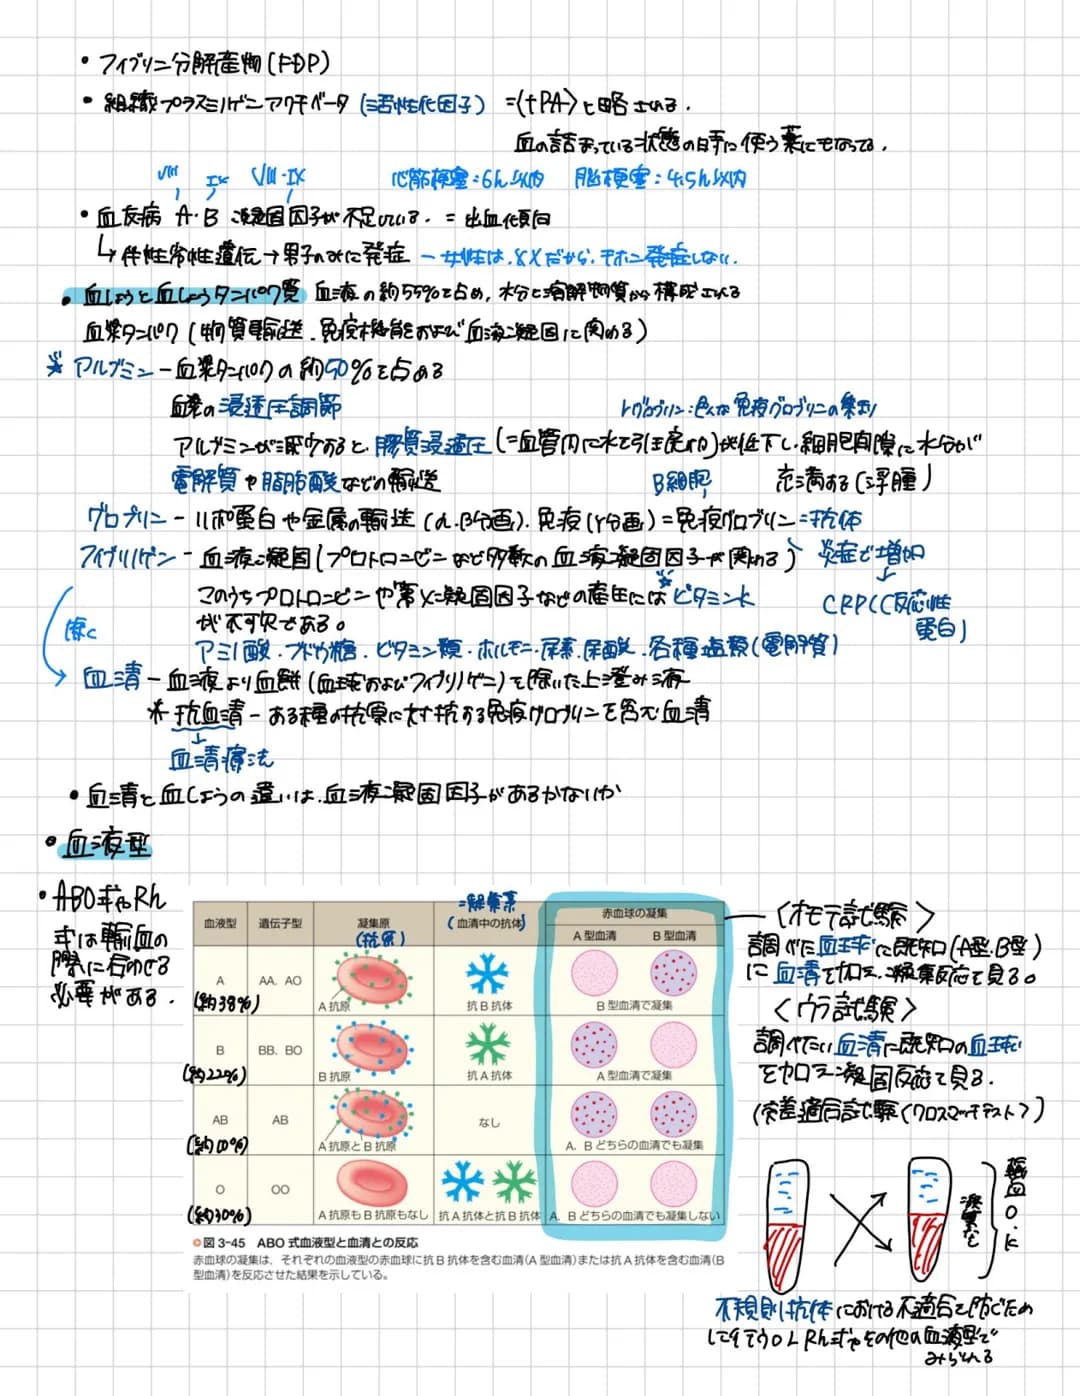 ・フィブリン分解産物(FDP)
・組織プラスミノゲンアクチベータ(活性化因子) =〈tPA〉と略される.
血の詰まっている状態の時に使う薬にもなってる.
VIII IX VIII・IX 心筋梗塞:6h以内 脳梗塞:4.5h以内
・血友病 A・B 凝固因子が不足している. = 出血傾向
↳伴性劣性遺伝→男子のみに発症 -女性は、XXだから、
・血しょうと血しょうタンパク質 血液の約55%を占め,水分と溶解物質から構成される
血漿タンパク(物質輸送、免疫機能および血液凝固に関わる)
☆アルブミン-血漿タンパクの約50%を占める
血漿の浸透圧調節
免疫グロブリンの集まり
アルブミンが減少すると、膠質浸透圧(=血管内に水を引)が低下し、細胞間隙に水分が
電解質や脂肪酸などの輸送 B細胞 充満する(浮腫)
グロブリン-リポ蛋白や金属の輸送(α、β分画)、免疫(γ分画)=免疫グロブリン=抗体
フィブリノゲン-血液凝固(プロトロンビンなど多数の血液凝固因子が関わる) 炎症で増加
このうちプロトロンビンや第X凝固因子などの産生には☆ビタミンK
CRP(C反応性
が不可欠である。 蛋白)
除く
アミノ酸、ブドウ糖、ビタミン類、ホルモン、尿素、尿酸、各種塩類(電解質)
血清-血液より血餅(血球およびフィブリノゲン)を除いた上澄み液
*抗血清-ある種の抗原に対抗する免疫グロブリンを含む血清
↓
血清療法
・血清と血しょうの違いは、血液凝固因子があるかないか
・血液型
・ABO式やRh
式は輸血の
際に合わせる
必要がある.
血液型 遺伝子型 凝集原 (抗原) =凝集素 (血清中の抗体) 赤血球の凝集
A 型血清 B 型血清
A AA、AO A 抗原 抗 B 抗体 B 型血清で凝集
(約38%)
B BB、BO B 抗原 抗 A 抗体 A 型血清で凝集
(約22%)
AB AB A 抗原と B 抗原 なし A、B どちらの血清でも凝集
(約10%)
O OO A 抗原も B 抗原もなし 抗 A 抗体と抗 B 抗体 A、B どちらの血清でも凝集しない
(約30%)
図 3-45 ABO 式血液型と血清との反応
赤血球の凝集は、それぞれの血液型の赤血球に抗 B 抗体を含む血清(A 型血清)または抗 A 抗体を含む血清(B
型血清)を反応させた結果を示している。
〈オモテ試験〉
調べたい血球に既知(A型、B型)
に血清を加え、凝集反応を見る。
〈ウラ試験〉
調べたい血清に既知の血球
を加え凝固反応を見る.
(交差適合試験〈クロスマッチテスト〉)
不規則抗体における不適合を防ぐため
Rh式やその他の血液型で
みられる